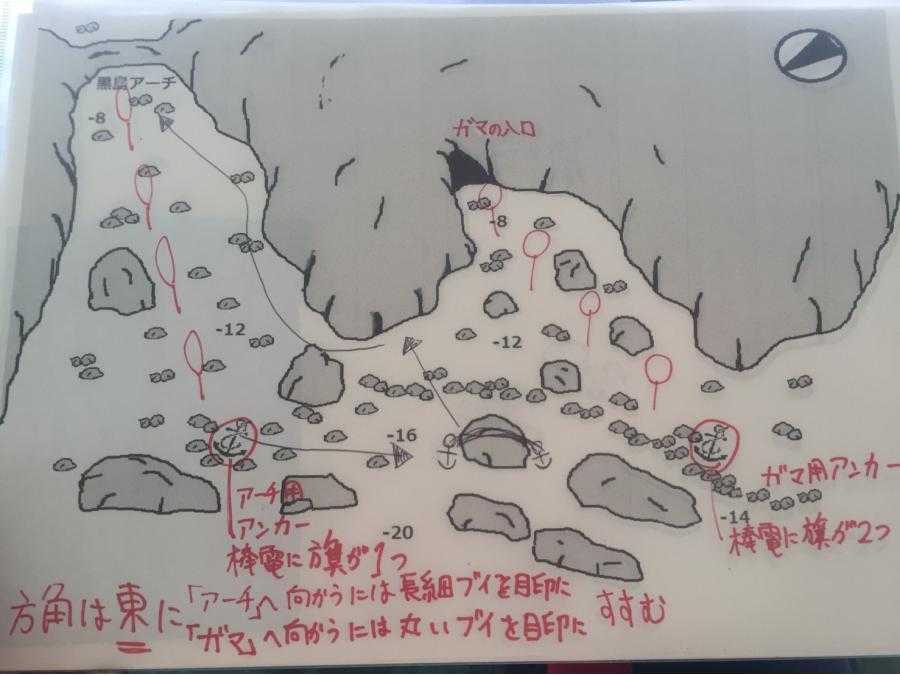 黒島アーチ
-8
ガマの入口
-8
-12
-12
-16
アーチ用
アンカー
棒電に旗が1つ
-20
ガマ用アンカー
-14
棒電に旗が2つ
方角は東に
「アーチ」へ向かうには長細ブイを目印に
「ガマ」へ向かうには丸いブイを目印に
すすむ